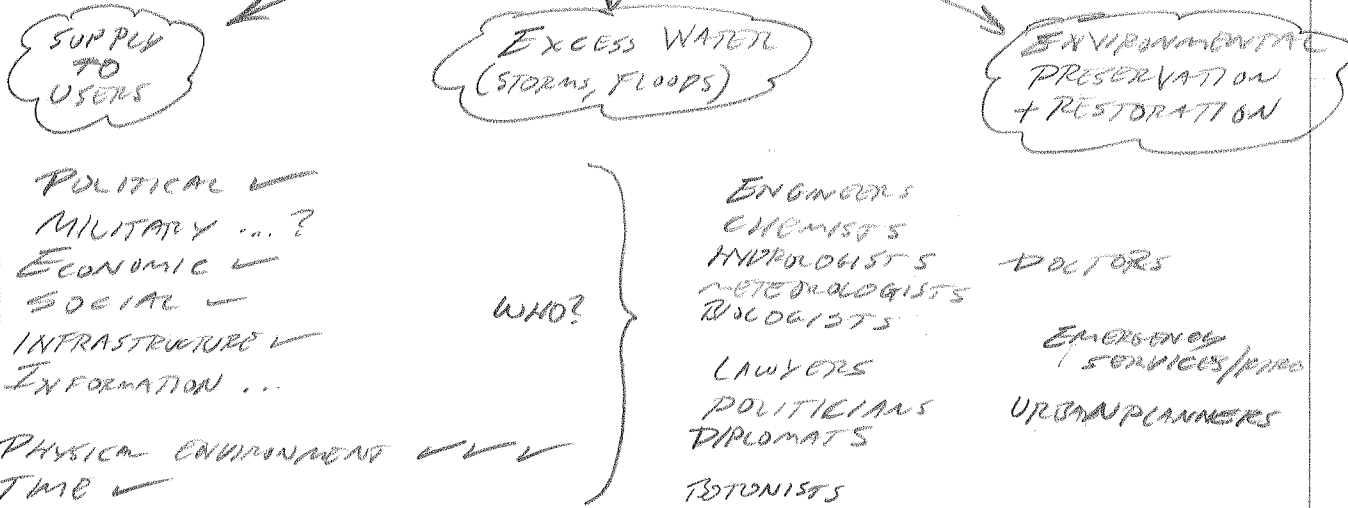 SUPPLY
TO
USERS
EXCESS WATER
(STORMS, FLOODS)
ENVIRONMENTAL
PRESERVATION
+ RESTORATION
POLITICAL ✓
MILITARY ...?
ECONOMIC ✓
SOCIAL ✓
INFRASTRUCTURE ✓
INFORMATION ...
PHYSICAL ENVIRONMENT ✓ ✓ ✓
TIME ✓
WHO?
ENGINEERS
CHEMISTS
HYDROLOGISTS
METEOROLOGISTS
BIOLOGISTS
LAWYERS
POLITICIANS
DIPLOMATS
BOTONISTS
DOCTORS
EMERGENCY
SERVICES/FIRE
URBAN PLANNERS